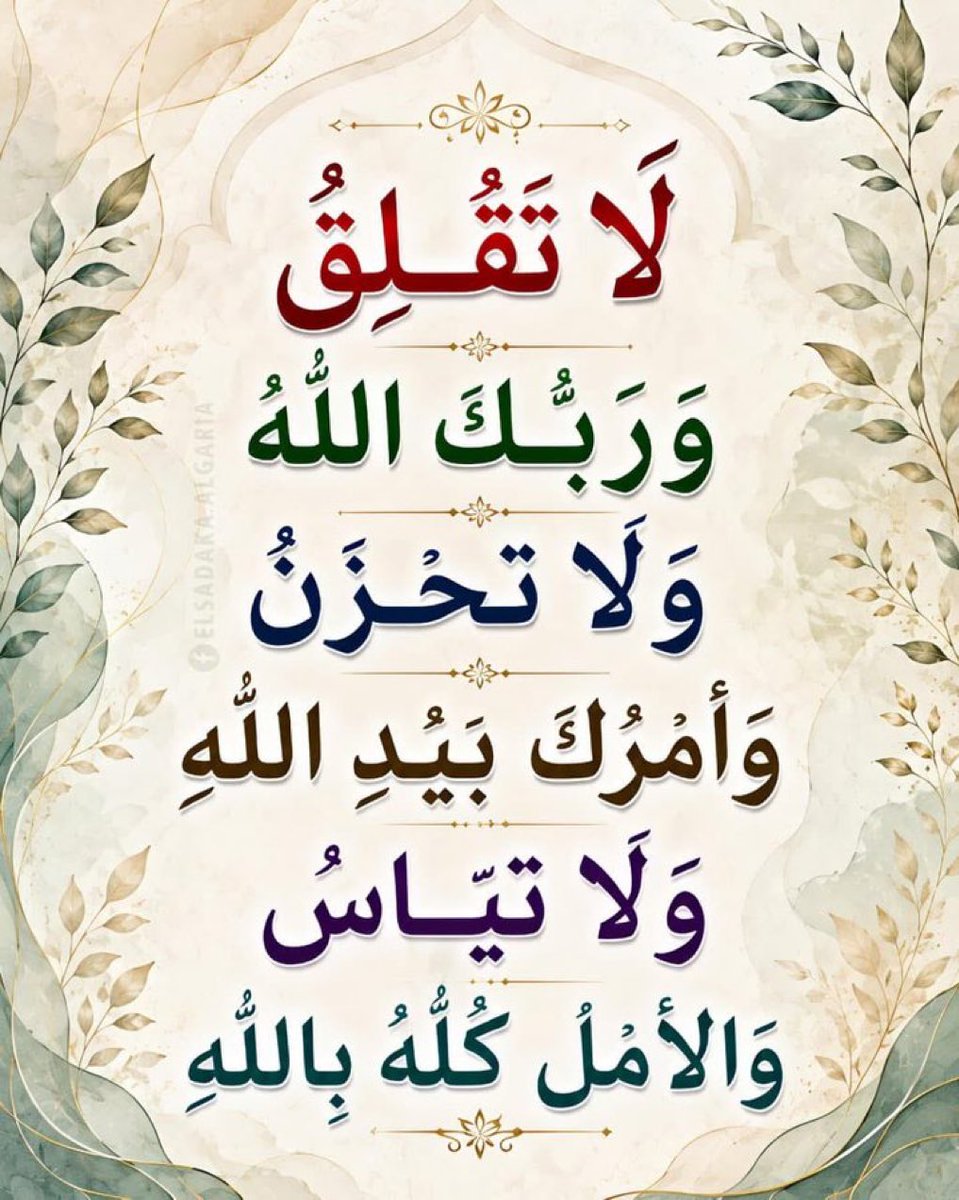 لَا تَقُـلِقُ
وَرَبُّـكَ اللَّهُ
وَلَا تحْـزَنُ
وَأمْرُكَ بَيُدِ اللَّهِ
وَلَا تيّـاسُ
وَالأمْلُ كُلُّهُ بِاللَّهِ
ELSADAKA.ALGARIA